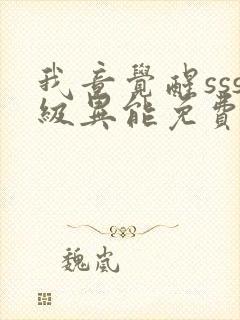 我竟覺醒sss
級異能免費
魏嵐